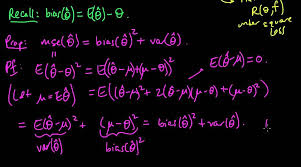 Recall: bias(θ̂) = E(θ̂) - θ.
R(θ, f)
under square
loss
Prop: mse(θ̂) = bias(θ̂)² + var(θ̂).
Pf: E(θ̂-θ)² = E(θ̂-μ+(μ-θ))²
E(θ̂-μ)=0.
(Let μ = Eθ̂) = E((θ̂-μ)² + 2(θ̂-μ)(μ-θ) + (μ-θ)²)
= E(θ̂-μ)² + (μ-θ)² = bias(θ̂)² + var(θ̂).
var(θ̂) bias(θ̂)²